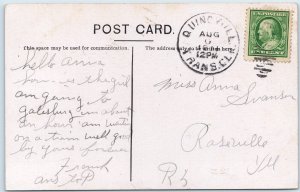 POST CARD.
This space may be used for communication.
The address only to be written here.
QUINCY, ILL.
AUG
12 PM
TRANS. CLK.
hello Anna
how is the girl
am going to
galesburg in about
an hour am writing
on a train well good
by yours forever
Frank
Miss Anna
Swanson
Roseville
Ill
R5